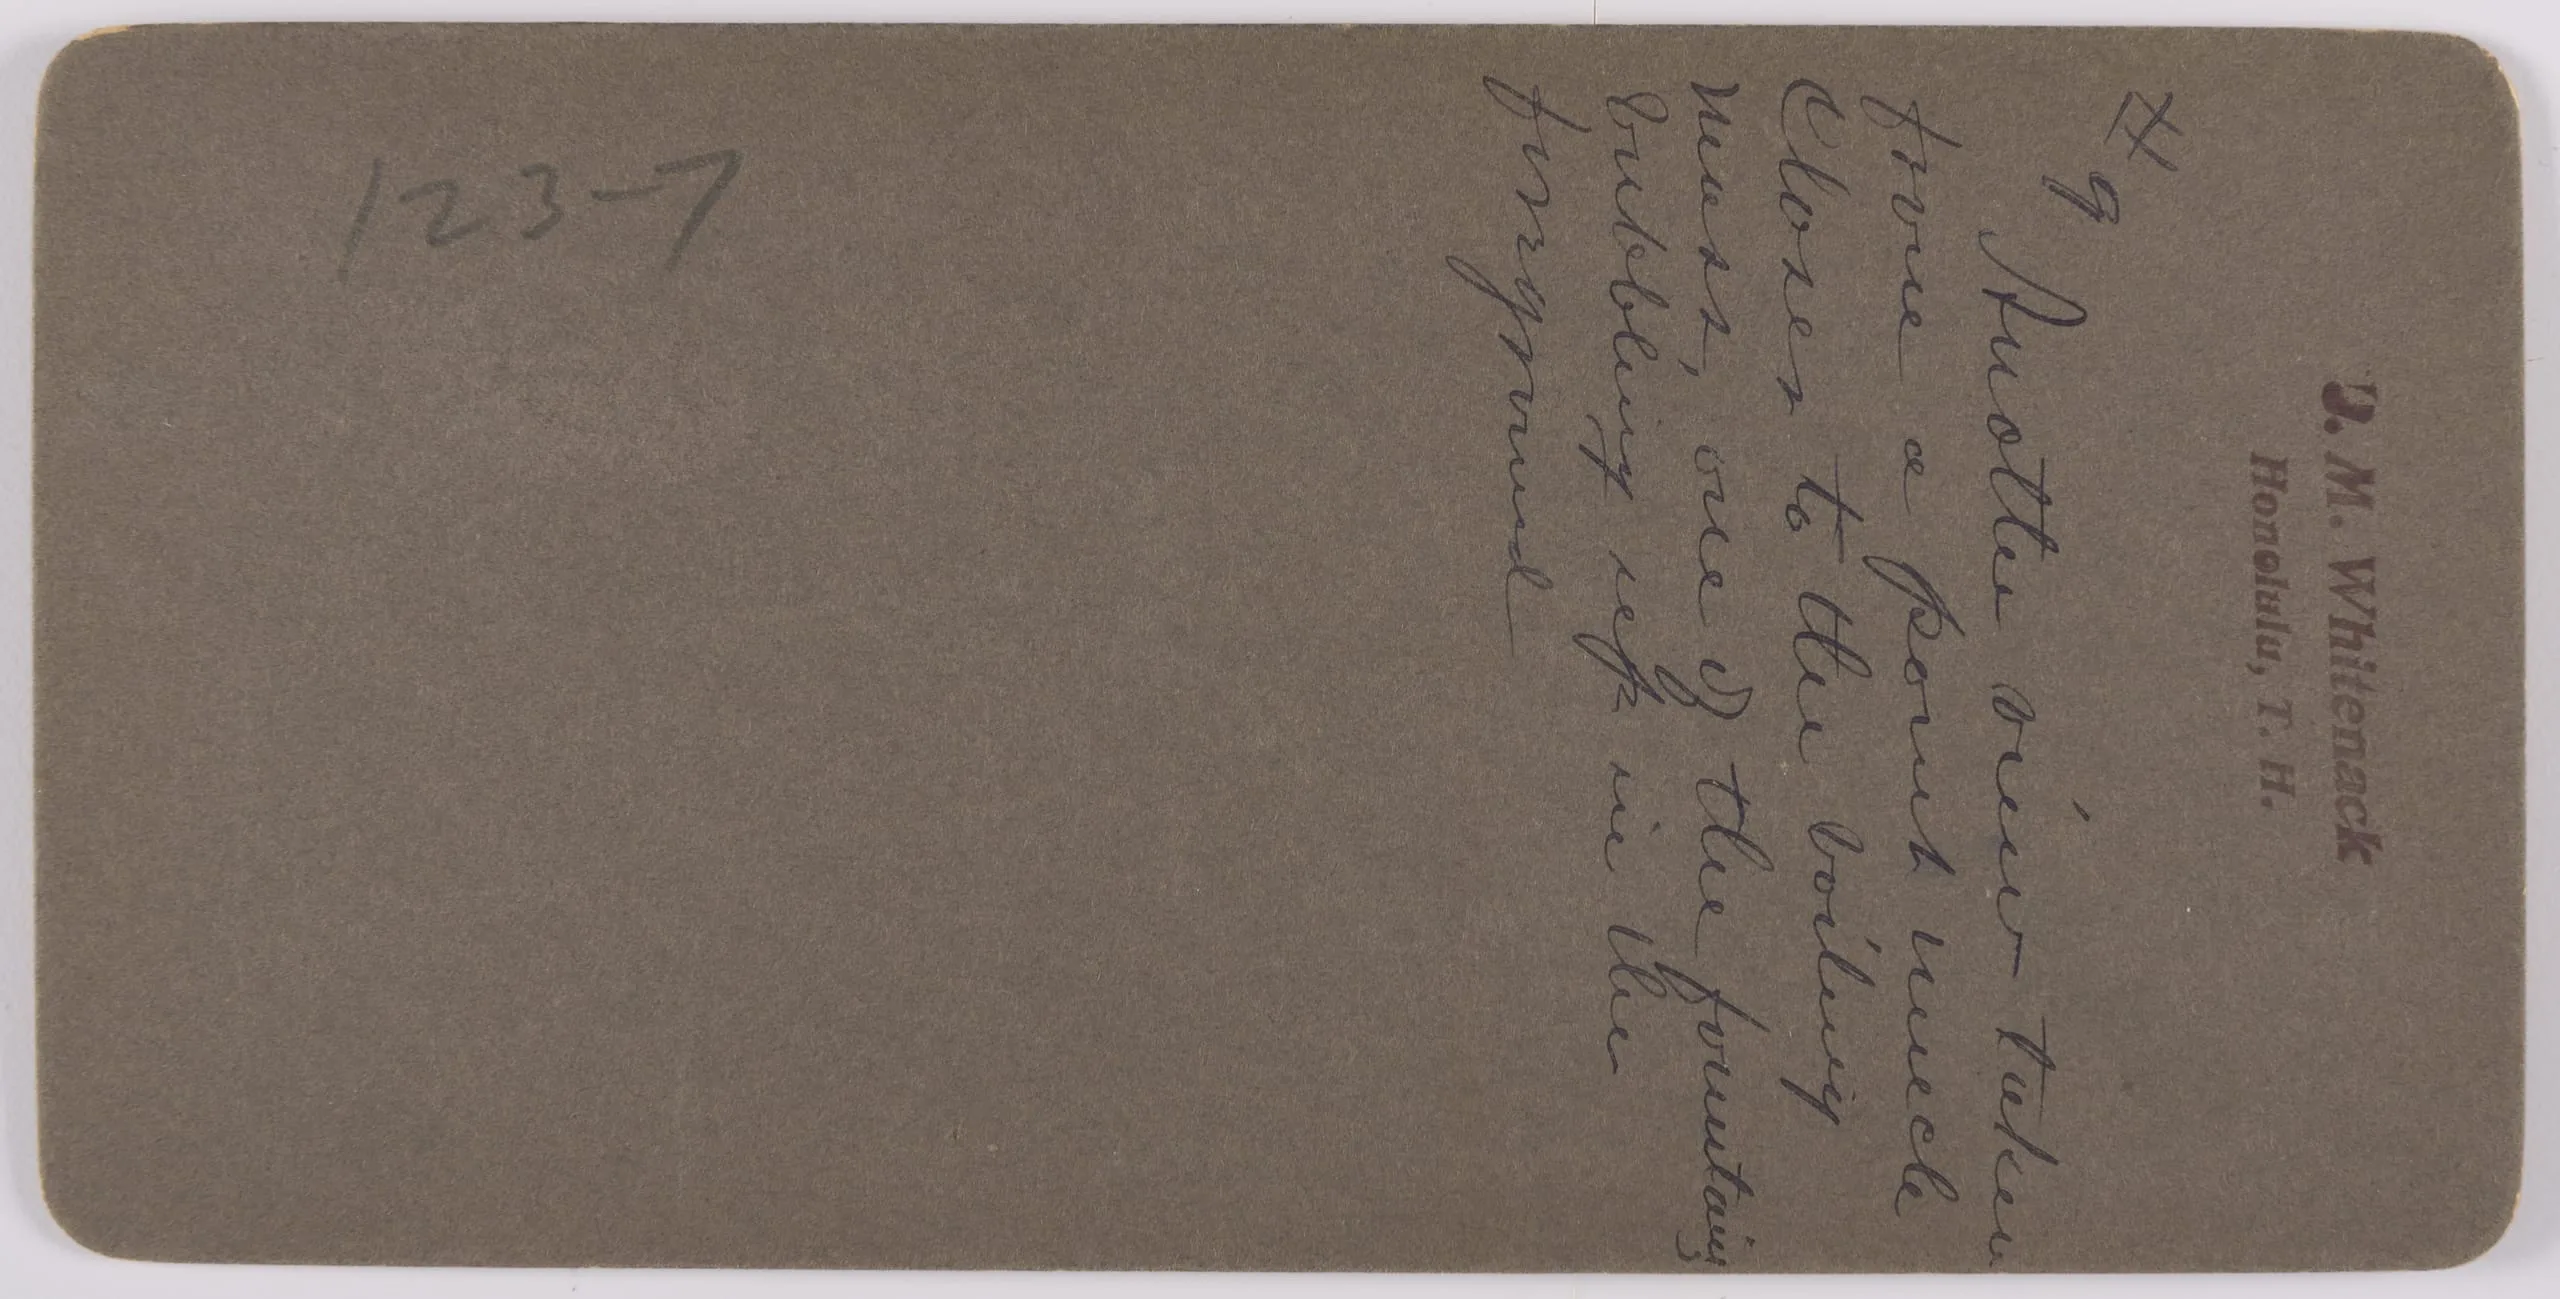 D. M. Whitenack
Honolulu, T. H.
# 9
Another view taken
from a point much
closer to the boiling
mass, one of the fountains
bubbling up in the
foreground
123-7